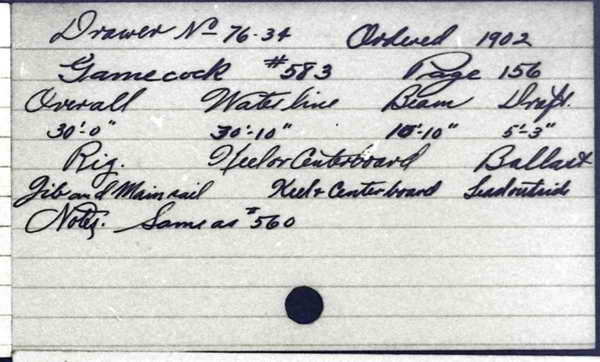 Drawer No 76-34 Ordered 1902
Gamecock #583 Page 156
Overall Waterline Beam Draft.
30'-0" 30'-10" 10'-10" 5'-3"
Rig. Keel or Centerboard Ballast
Jib and Mainsail Keel & Centerboard Lead outside
Notes. Same as #560